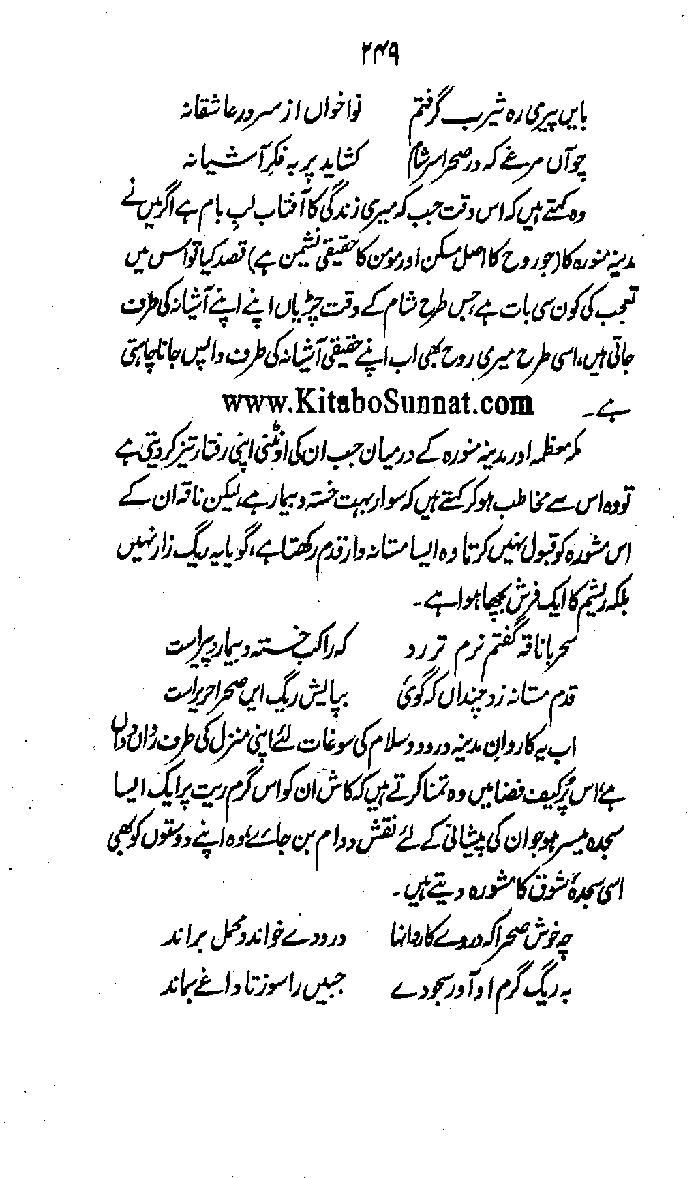 ۲۴۹
بایں پیری رہ یثرب گرفتم نوا خواں از سرور عاشقانہ
چو آں مرغے کہ در صحرا سر شام کشاید پر بہ فکر آشیانہ
وہ کہتے ہیں کہ اس وقت جب کہ میری زندگی کا آفتاب لب بام ہے اگر میں نے
مدینہ منورہ کا (جو روح کا اصل مسکن اور مومن کا حقیقی نشیمن ہے) قصد کیا تو اس میں
تعجب کی کون سی بات ہے، جس طرح شام کے وقت چڑیاں اپنے اپنے آشیانہ کی طرف
جاتی ہیں، اسی طرح میری روح بھی اب اپنے حقیقی آشیانہ کی طرف واپس جانا چاہتی
ہے۔ www.KitaboSunnat.com
مکہ معظمہ اور مدینہ منورہ کے درمیان جب ان کی اونٹنی اپنی رفتار تیز کر دیتی ہے
تو وہ اس سے مخاطب ہو کر کہتے ہیں کہ سوار بہت خستہ و بیمار ہے، لیکن ناقہ ان کے
اس مشورہ کو قبول نہیں کرتا وہ ایسا مستانہ وار قدم رکھتا ہے، گویا یہ ریگ زار نہیں
بلکہ ریشم کا ایک فرش بچھا ہوا ہے۔
سحر با ناقہ گفتم نرم تر رو کہ راکب خستہ و بیمار و پیر است
قدم مستانہ زد چنداں کہ گوئی بپایش ریگ ایں صحرا حریر است
اب یہ کاروان مدینہ درود و سلام کی سوغات لئے اپنی منزل کی طرف رواں دواں
ہے، اس پُرکیف فضا میں وہ تمنا کرتے ہیں کہ کاش ان کو اس گرم ریت پر ایک ایسا
سجدہ میسر ہو جو ان کی پیشانی کے لئے نقش دوام بن جائے، وہ اپنے دوستوں کو بھی
اسی سجدۂ شوق کا مشورہ دیتے ہیں۔
چہ خوش صحرا کہ در وے کارواں‌ہا درودے خواند و محمل براند
بہ ریگ گرم او آور سجودے جبیں را سوز تا داغے بماند